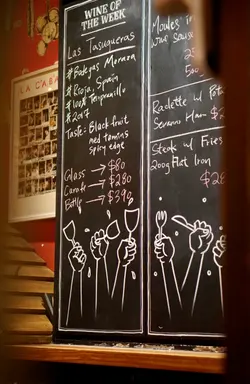 WINE OF
THE WEEK
Las Tasugueras
#Bodegas Moraza
#Rioja, Spain
#100% Tempranillo
#2017
Taste: Black fruit
red tannins
spicy edge
Glass → $80
Carafe → $280
Bottle → $398
Moules
Wine Sauce
Raclette w/ Pota
Serrano Ham
Steak w/ Fries
200g Flat Iron
LA CABA